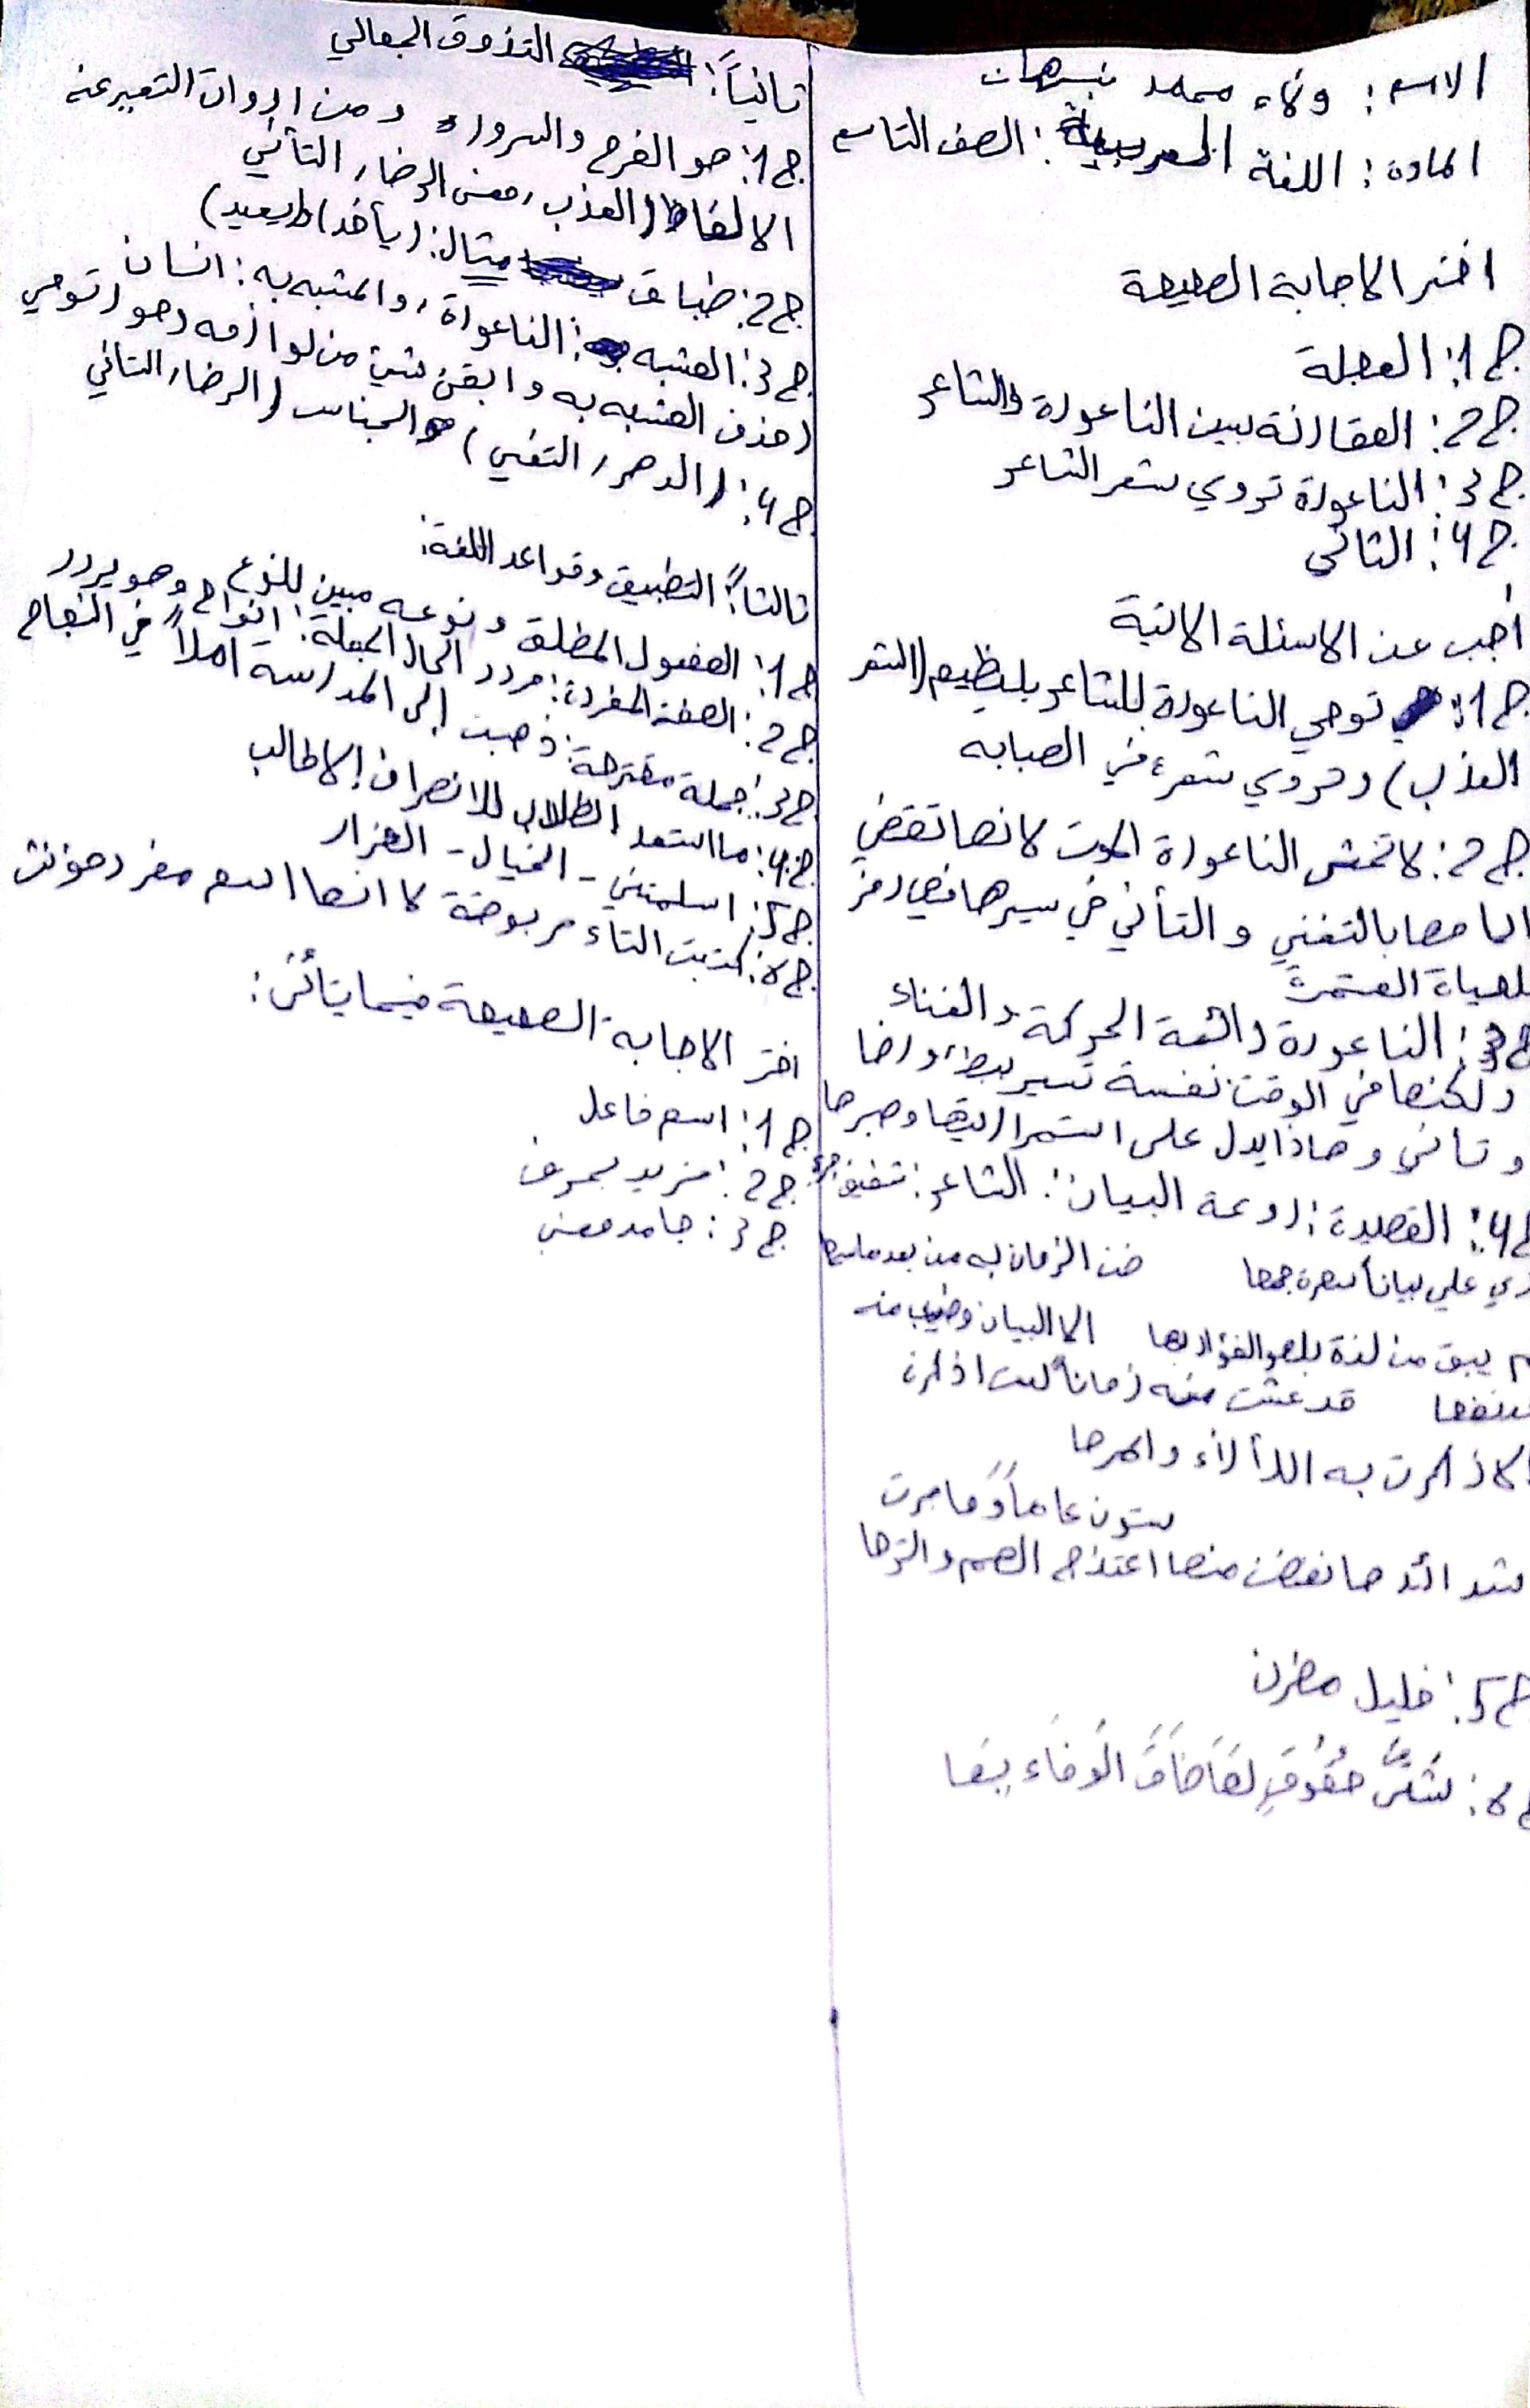 الاسم: ولاء محمد نبهان
المادة: اللغة العربية: الصف التاسع
اختر الاجابة الصحيحة
ج1: العجلة
ج2: المقارنة بين الناعورة والشاعر
ج3: الناعورة تروي شعر الشاعر
ج4: التأني
أجب عن الاسئلة الاتية
ج1: توحي الناعورة للشاعر بلنظيم (الشعر
العذب) وتروي شعره في الصبابه
ج2: لا تخشى الناعورة الموت لانها تقضي
ايامها بالتغني والتأني في سيرها فهي رمز
للحياة المستمرة
ج3: الناعورة دائمة الحركة والغناء
ولكنها في الوقت نفسة تسير ببطء ورضا
وتأني وهاذا يدل على استمراريتها وصبرها
ج4: القصيدة: روعة البيان: الشاعر: شفيق جبري
ردي علي بياناً سحره جمحا ضن الزمان به من بعد ما سمحا
لم يبق من لذة يلهو الفؤاد بها الا البيان وطيب منه
قد نفحا قد عشت منه زماناً لست اذكره
الا ذكرت به اللألاء والمرحا
ستون عاماً وما مرت
شدائدها نفضت منها اعتلاج الهم والترحا
ج5: خليل مطران
ج6: شتى حقوقٍ لها ضاق الوفاء بها
ثانياً: التذوق الجمالي
ج1: هو الفرح والسرور ومن ادوات التعبير عنه
الالفاظ (العذب، معنى الرضا، التأني
ج2: طباق مثال: (يأخذ) (يعيد)
ج3: المشبه: الناعورة، والمشبه به: انسان
(حذف المشبه به وابقى شيئ من لوازمه وهو (توحي
ج4: (الدهر، التغني) الجناس (الرضا، التاني
ثالثاً: التطبيق وقواعد اللغة:
ج1: المفعول المطلق ونوعه مبين للنوع
ج2: الصفة المفردة: مردد الحال الجملة: انواح وهو يردد
ج3: جملة مقترحة: ذهبت إلى المدرسة املاً في النجاح
ج4: ما استعد الطلاب للانصراف إلا طالب
ج5: اسلمتني - الخيال - الهزار
ج6: كتبت التاء مربوطة لانها اسم مفرد مؤنث
اختر الاجابة الصحيحة فيما يأتي:
ج1: اسم فاعل
ج2: مزيد بحرف
ج3: جامد معنى